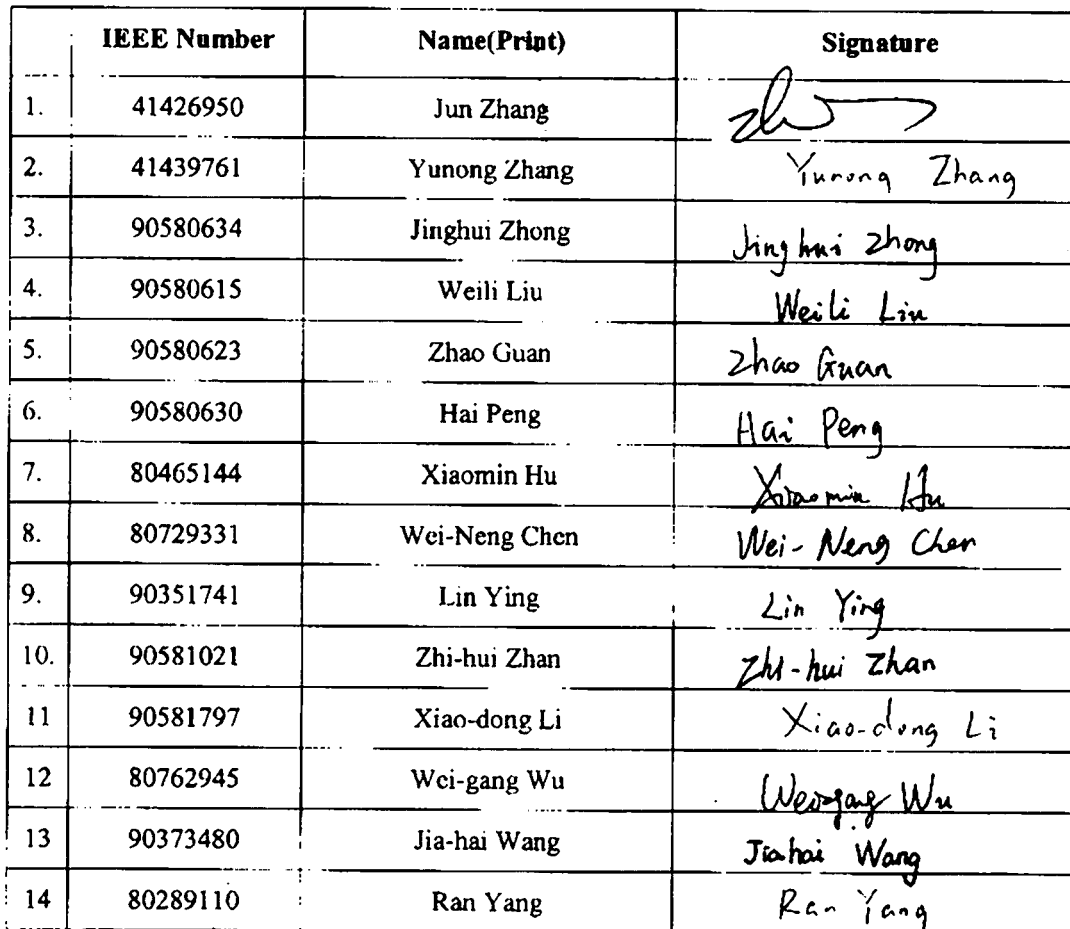 IEEE Number Name(Print) Signature
1. 41426950 Jun Zhang
2. 41439761 Yunong Zhang Yunong Zhang
3. 90580634 Jinghui Zhong Jinghui Zhong
4. 90580615 Weili Liu Weili Liu
5. 90580623 Zhao Guan Zhao Guan
6. 90580630 Hai Peng Hai Peng
7. 80465144 Xiaomin Hu Xiaomin Hu
8. 80729331 Wei-Neng Chen Wei-Neng Chen
9. 90351741 Lin Ying Lin Ying
10. 90581021 Zhi-hui Zhan Zhi-hui Zhan
11 90581797 Xiao-dong Li Xiao-dong Li
12 80762945 Wei-gang Wu Weigang Wu
13 90373480 Jia-hai Wang Jiahai Wang
14 80289110 Ran Yang Ran Yang